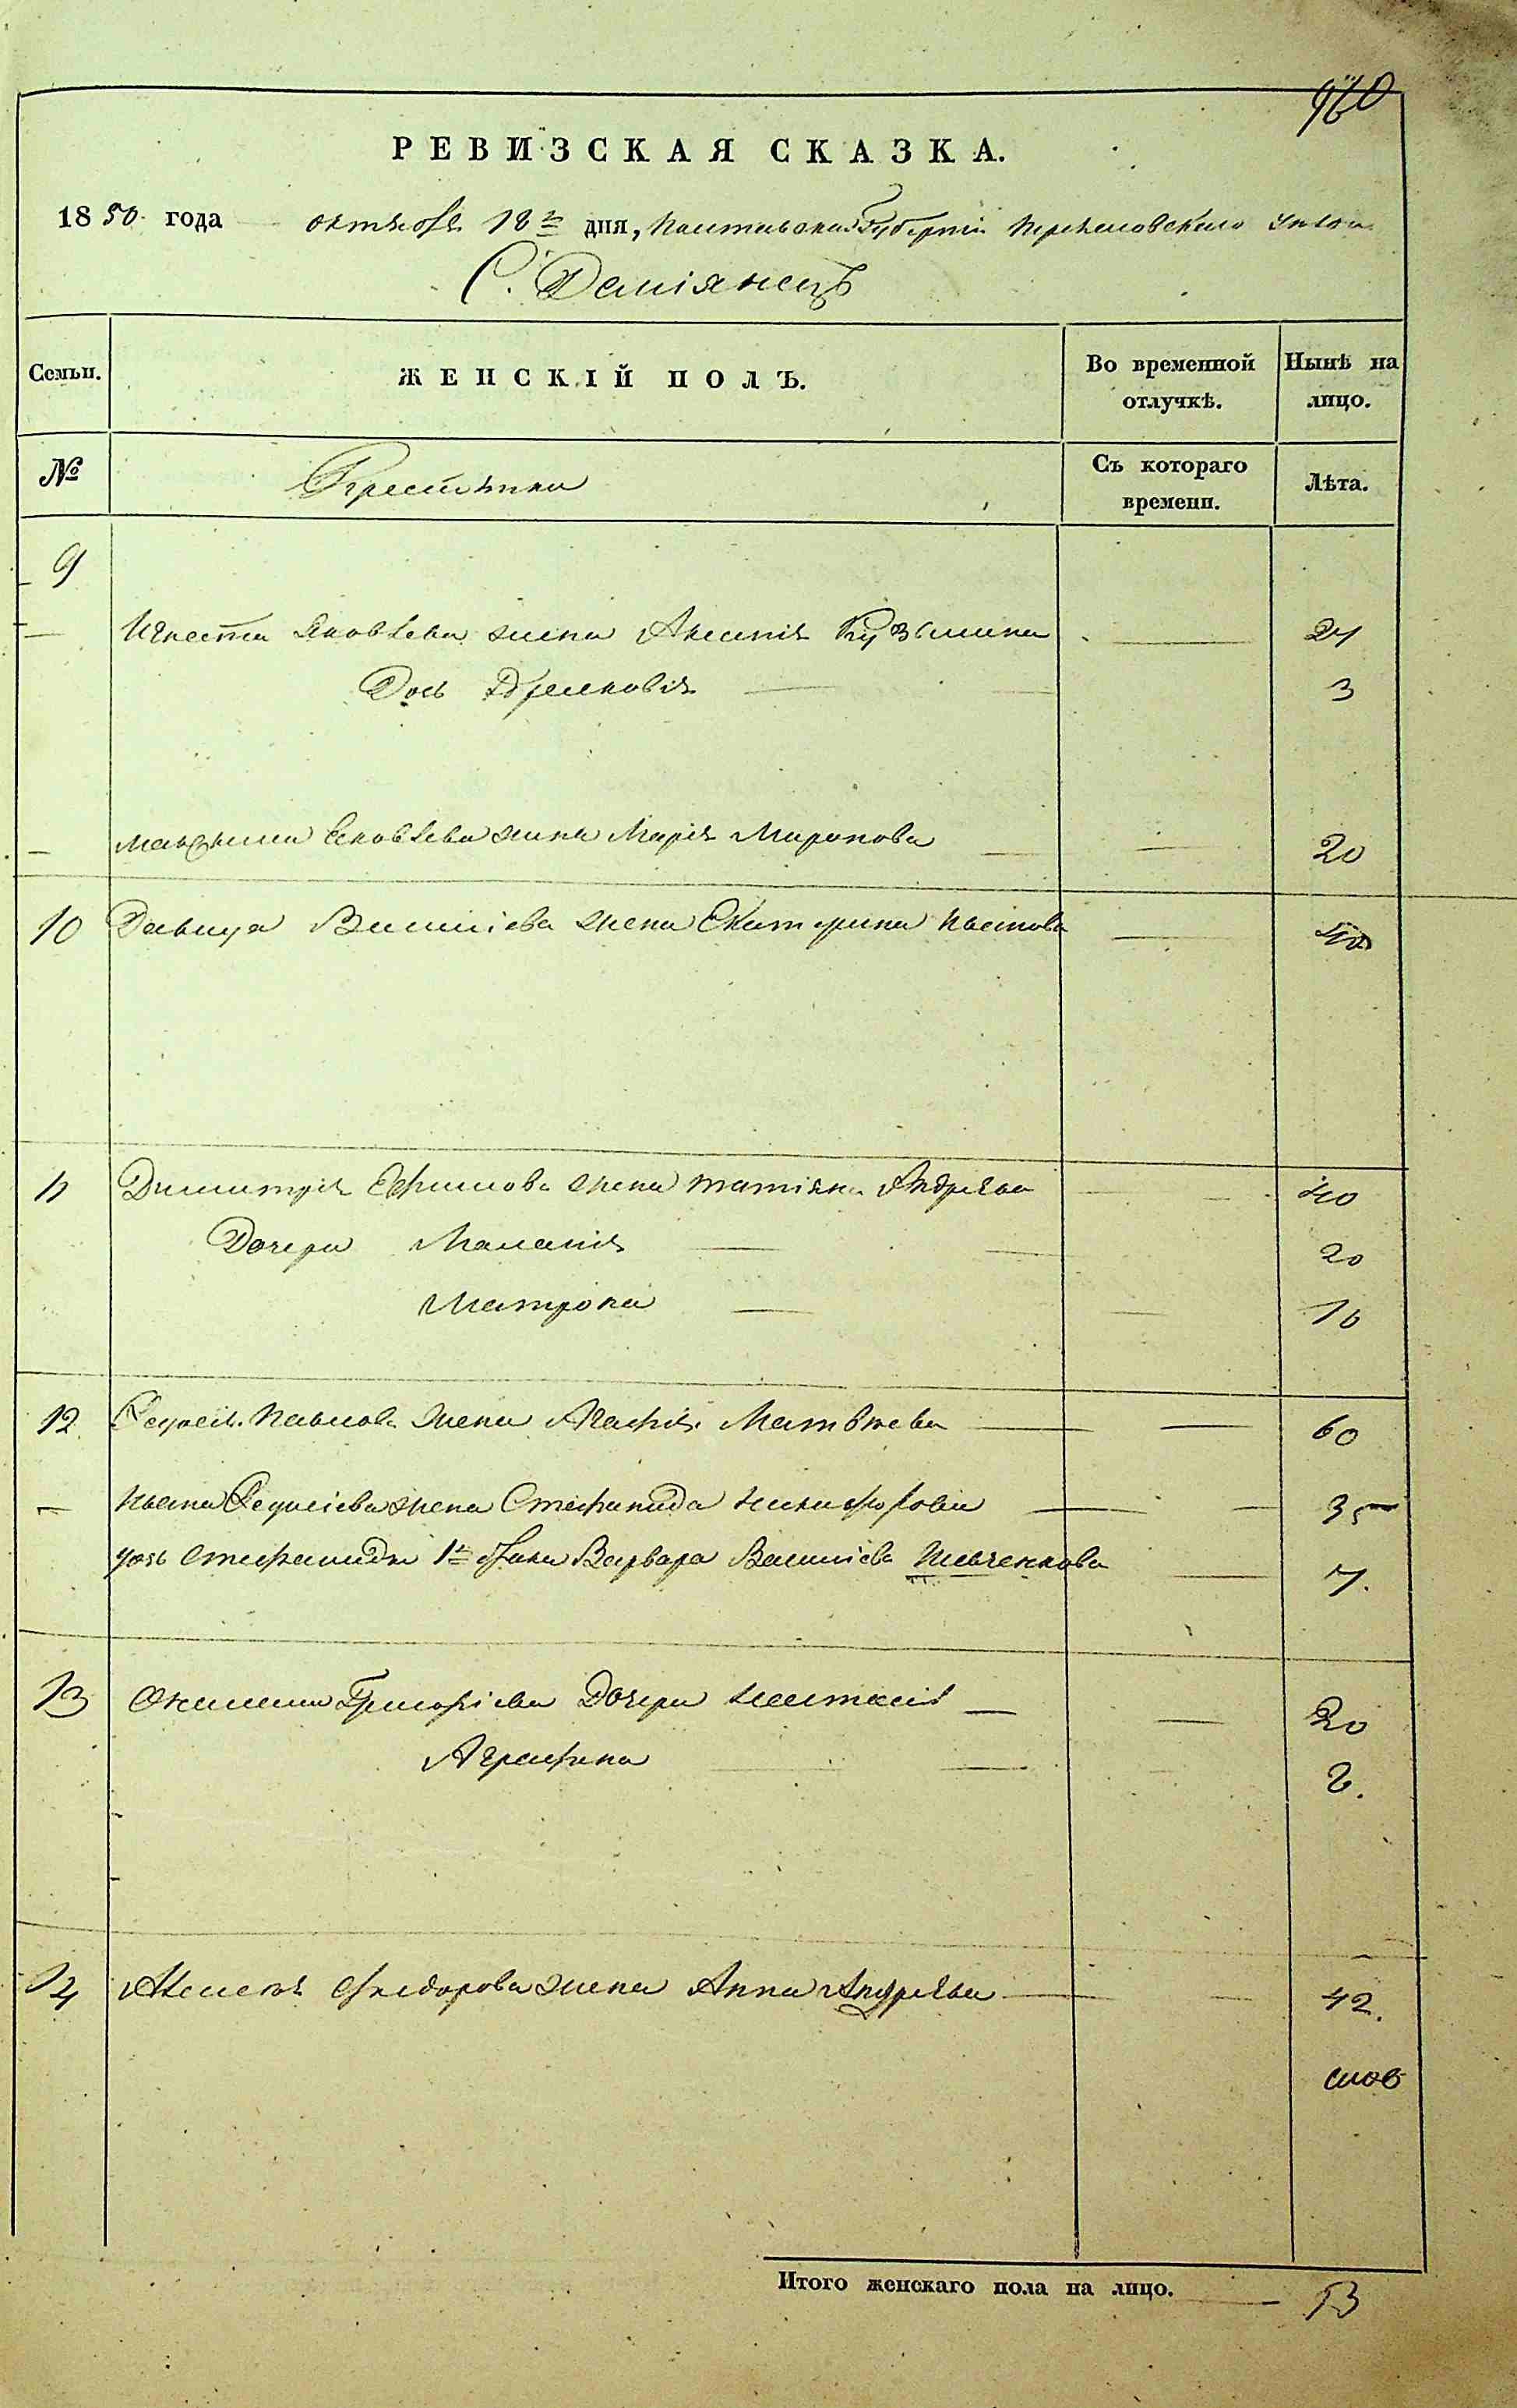 960
РЕВИЗСКАЯ СКАЗКА.
1850 года октября 18го дня, Полтавской Губернiи Переяславского уезда
С. Демiянецъ
Семьи. ЖЕНСКIЙ ПОЛЪ. Во временной отлучкѣ. Нынѣ на лицо.
№ Крестьяне Съ котораго времени. Лѣта.
9
Игната Яковлева жена Аксинiя Кузьмина 24
Дочь 3
Максима Яковлева жена Марiя Миронова 20
10 Давида Василiева жена Екатерина 40
11 Димитрiя Ефимова жена Татiяна Андреева 40
Дочери Маланiя 20
Матрона 16
12 Павлова жена Агафiя Матвѣева 60
Ивана жена Стефанида Никифорова 35
дочь Стефаниды 1го брака Варвара Василiева Шевченкова 7.
13 Григорiева Дочери Настасiя 20
Аграфина
14 Алексѣя Федорова жена Анна Андреева 42.
Итого женскаго пола на лицо. 13